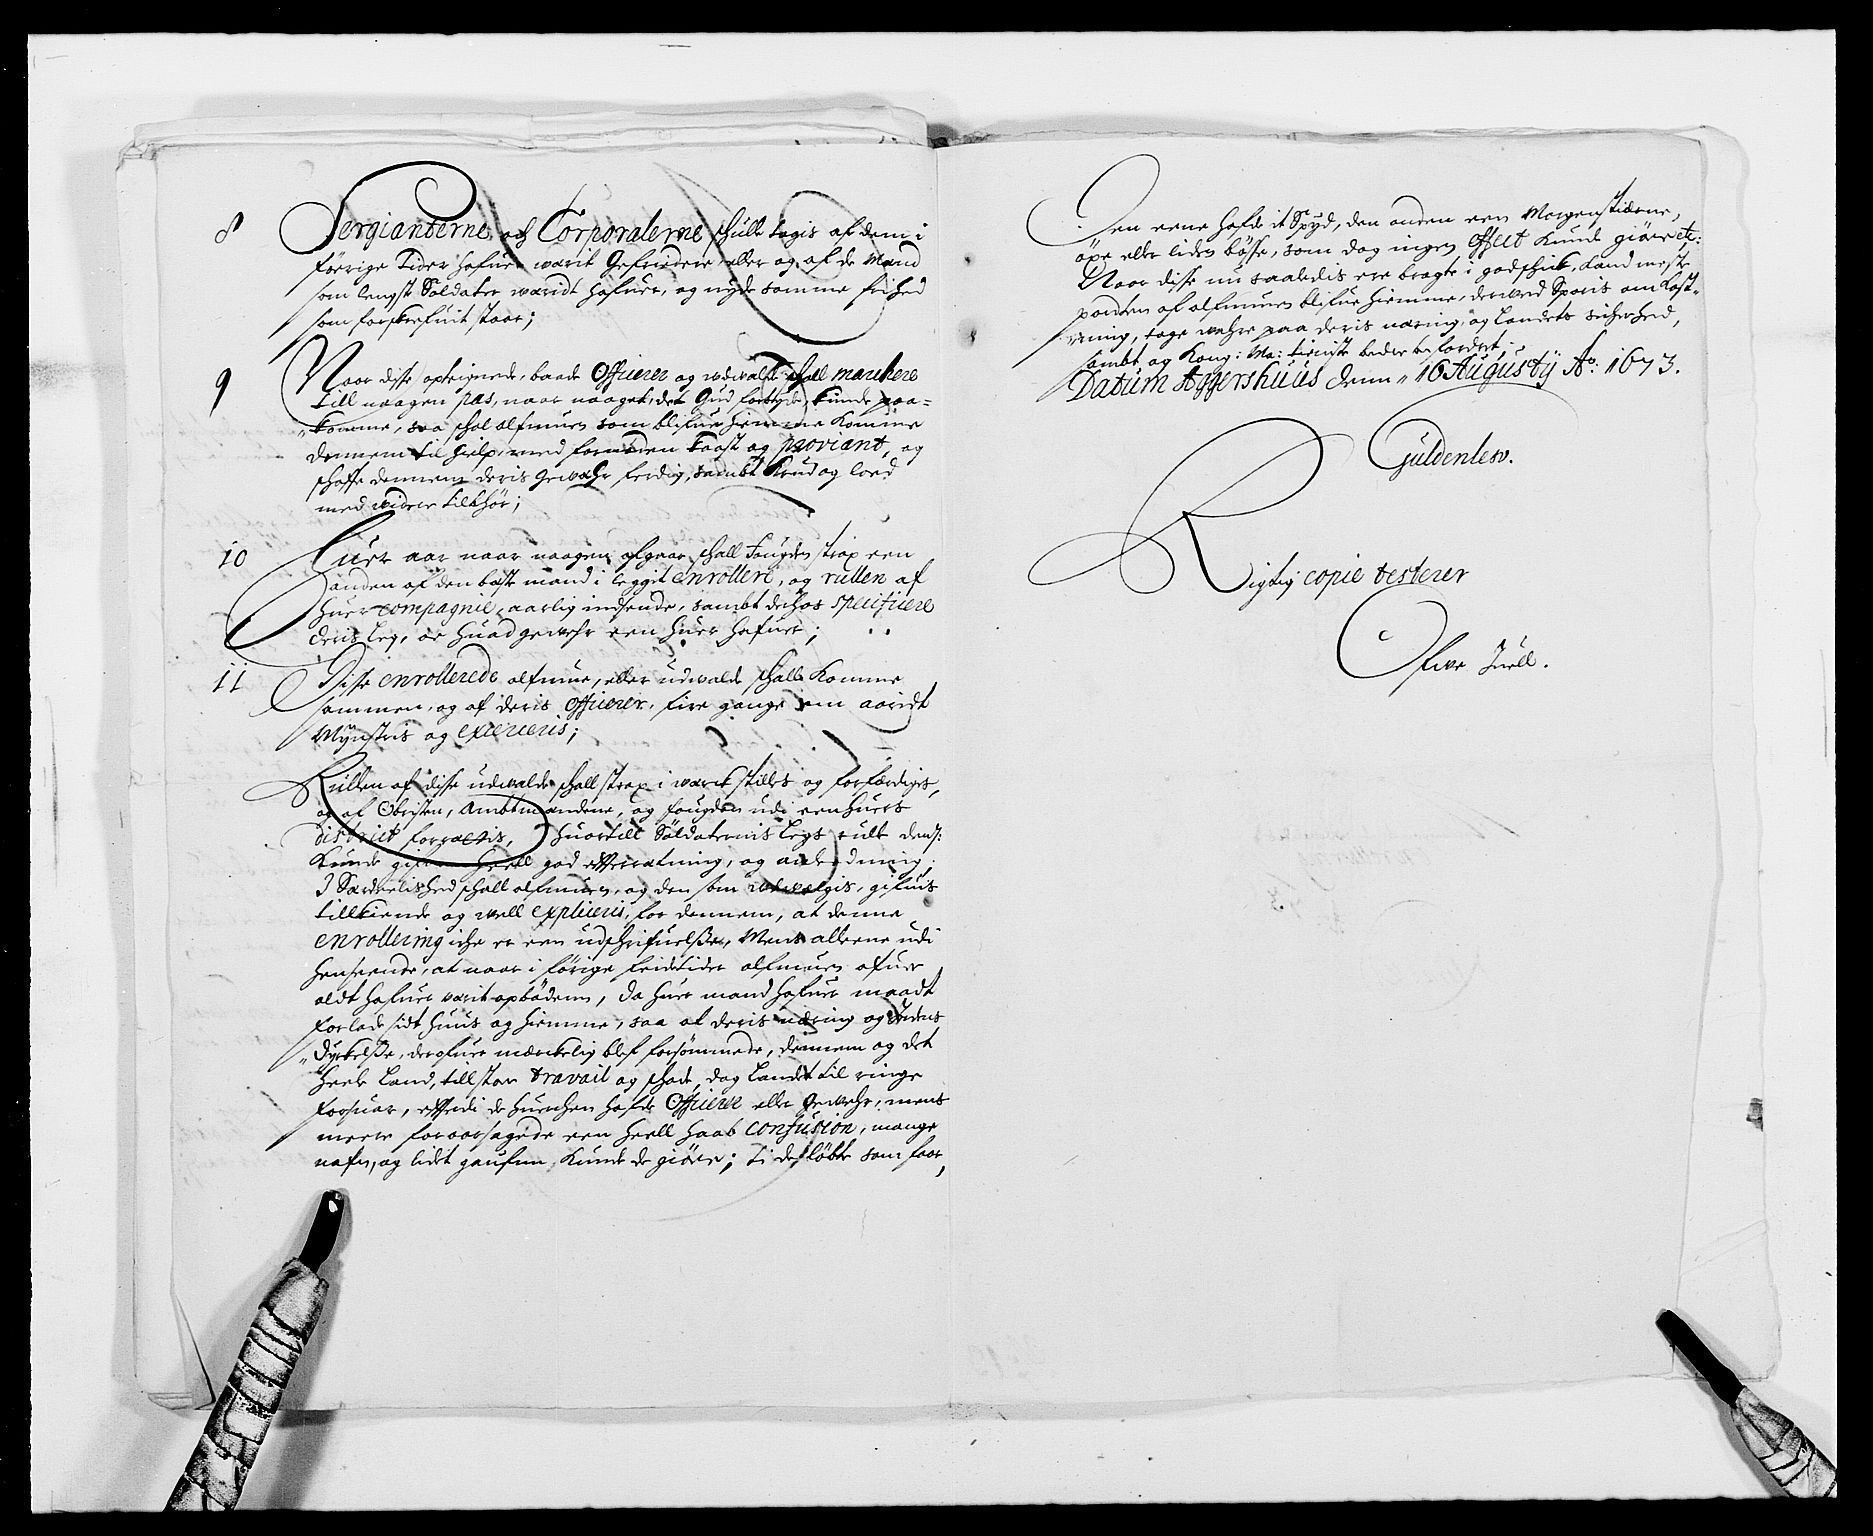 8 Sergianterne och Corporalerne skulle tagis af dem i
förrige Tider hafuer werit Gefriedere, eller og af de Mænd
som lengst Soldater weridt hafuer, og nyde samme frihed
som forskrefuit staar;
9 Naar disse opteignede, baade Officerer og udualde skall marchere
till naagen pas, naar naaget, det Gud forbyde, kunde paa-
komme, saa skal almuen som blifue hiemme komme
dennem til hielp, med fornöden kaast og proviant, og
skaffe dennem deris gewehr ferdig, sambt krud og loed
med widere tilbehör;
10 Huer aar naar naagen afgaar, skall Fougden strax een
anden af den beste mand i legget enrollere, og rullen af
huer compagnie aarlig indsende, sambt derhos specificere
deris leg, oc huad gewehr een huer hafuer;
11 Disse enrollerede almue, eller udualde skall komme
sammen, og af deris Officerer, fire gange om aaridt
Mynstris og exerceris;
Rullen af disse udualde skall strax i werck stilles og forfærdiges,
og af Obristen, Ambtmandene, og fougden udi een huers
district forrættis, huortill Soldaternis legs rulle dem
kunde gifue heell god efterretning, og anledning,
I Særdelished skall almuen, og den som udvælgis, gifuis
tillkiende og well expliceris for dennem, at denne
enrollering iche er een udskrifuelsse, Mens alleene udi
henseende, at naar i förige feidetider almuen ofuer
aldt hafuer werit opböden, da huer mand hafuer maadt
forlade sidt huus og hiemme, saa at deris næring og Jordens
dyrkelsse, derofuer mærckelig blef forsömmede, dennem og det
heele Land, till stor travail og skade, dog landet til ringe
forsuar, efterdi de huerchen hafde Officerer eller gewehr, mens
meere foraarsagede een heell haab confusion, mange
nafn, og lidt gaufun kunde de giöre; ti de löbte som faar,
Den eene hafde it Spyd, den anden een Morgenstierne,
öxe eller liden bösse, som dog ingen effect kunde giöre etc:
Naar disse nu saaledis ere bragte i godskick, kand meste
parten af almuen blifue hiemme, derwed Sparis om kost-
ning, tage wahre paa deris næring, og landets sicherhed,
sambt og Kong: Ma: tieniste bedre befordret,
Datum Aggershuus denn 16 Augusty Ao: 1673.
Güldenlew.
Rigtig copie testerer
Ofwe Juell.